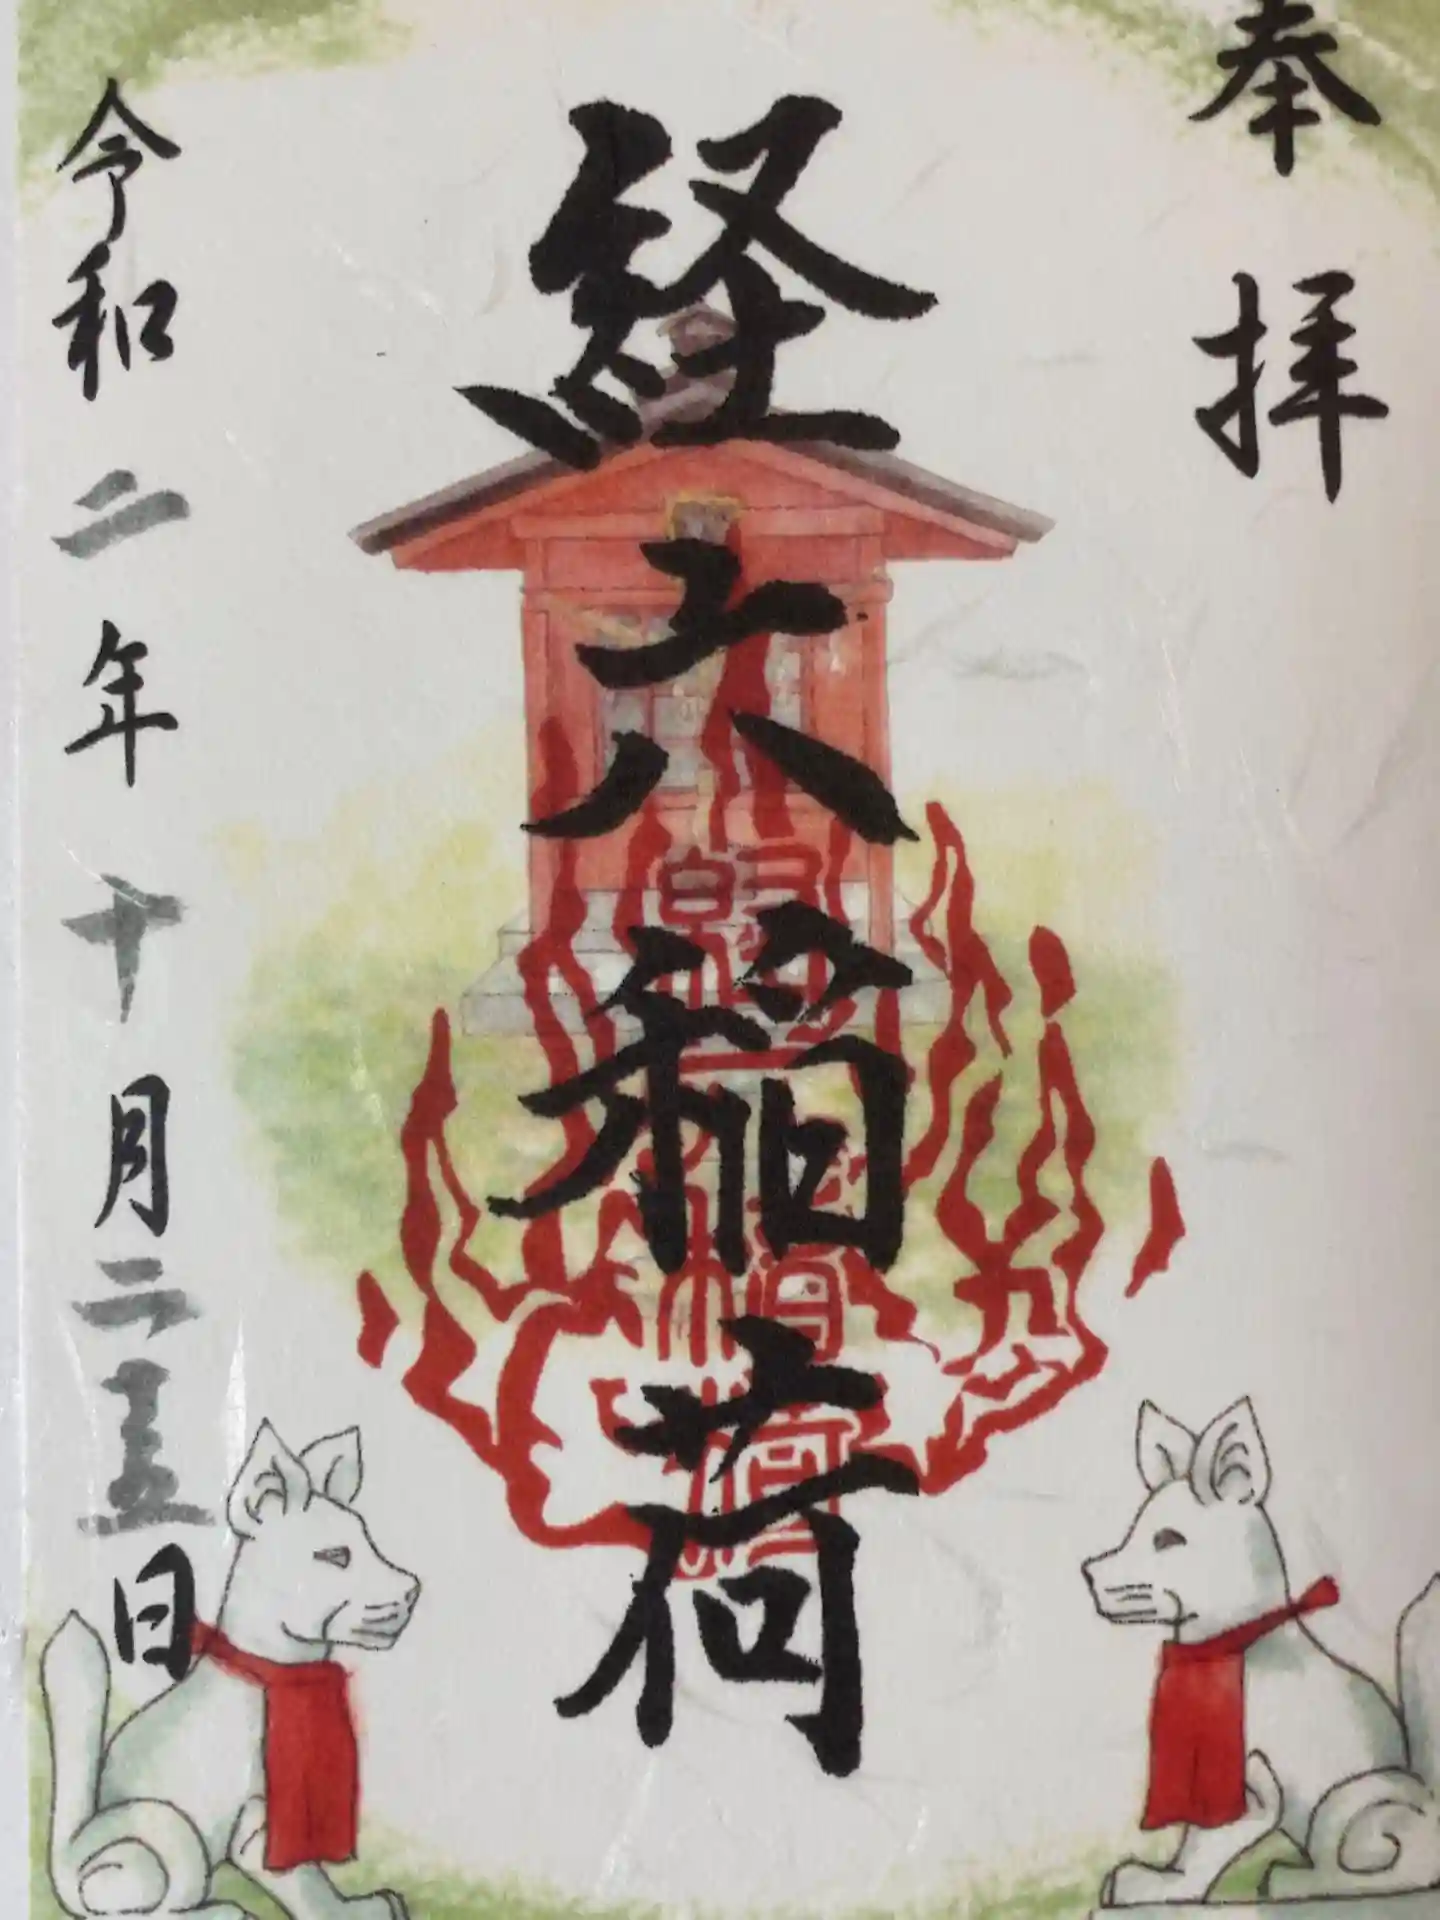 奉拝
経六稲荷
令和二年十月二十五日